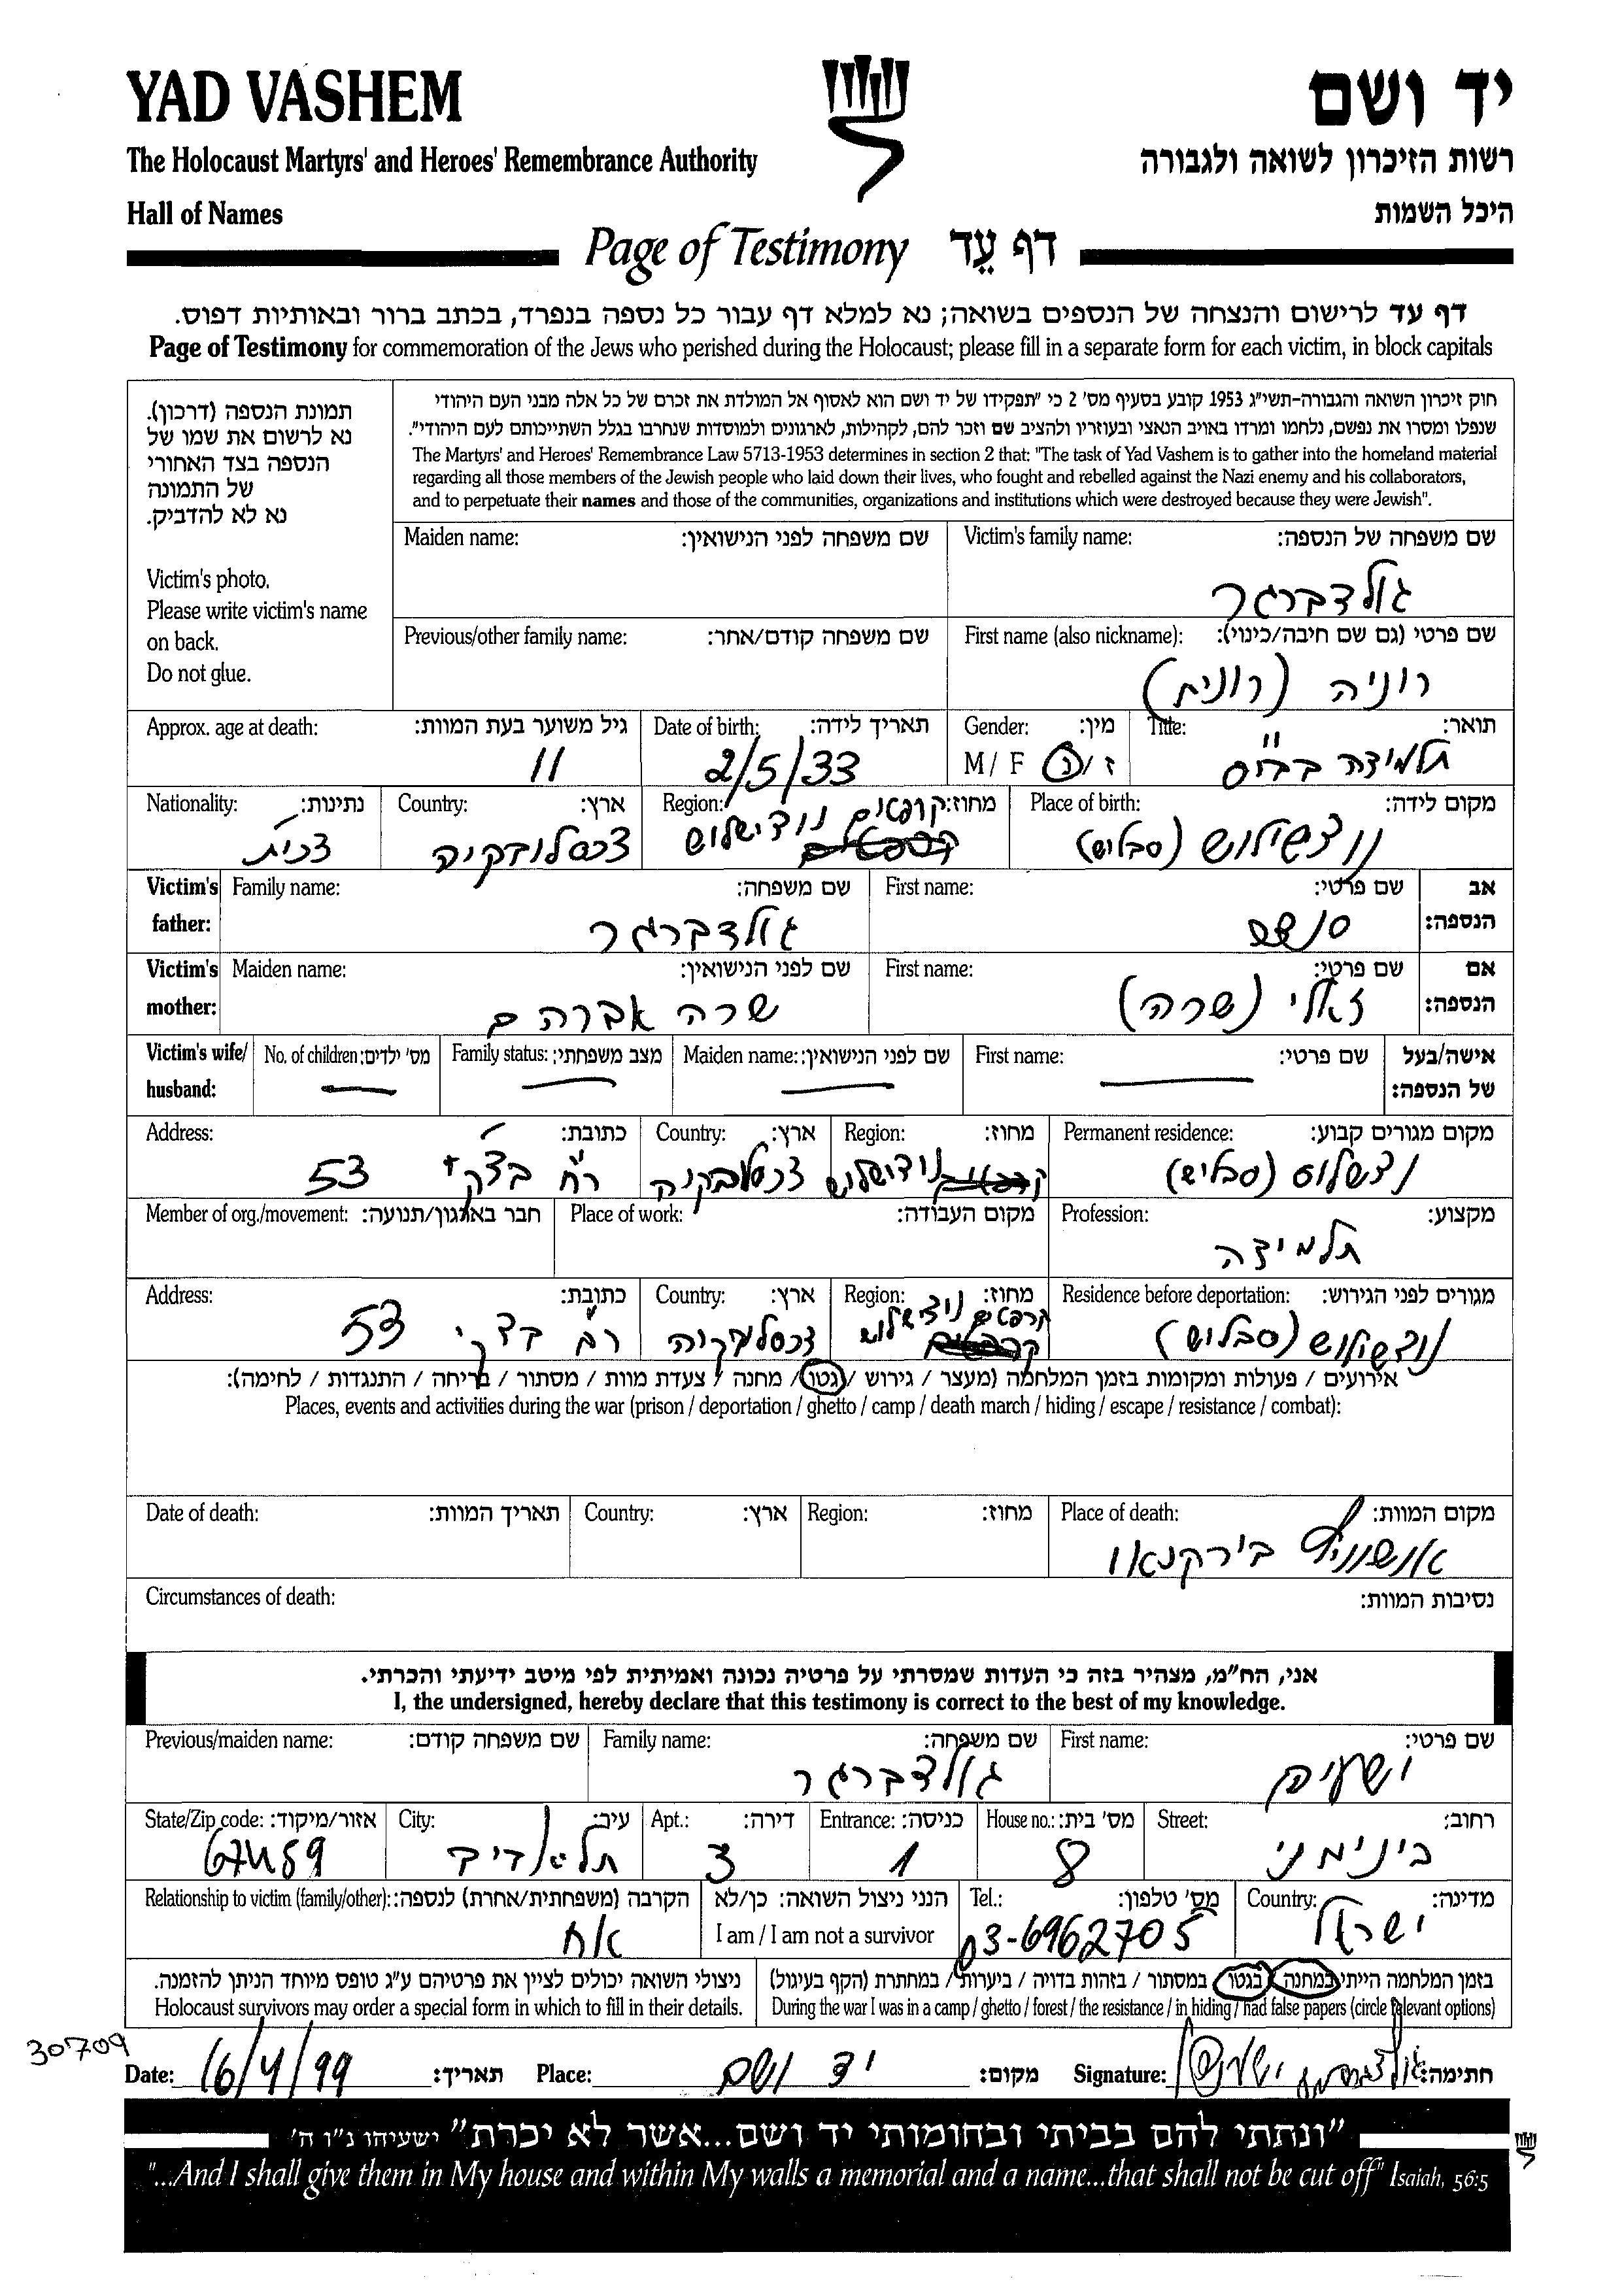 YAD VASHEM
יד ושם
The Holocaust Martyrs' and Heroes' Remembrance Authority
רשות הזיכרון לשואה ולגבורה
Hall of Names
היכל השמות
Page of Testimony דף עֵד
דף עד לרישום והנצחה של הנספים בשואה; נא למלא דף עבור כל נספה בנפרד, בכתב ברור ובאותיות דפוס.
Page of Testimony for commemoration of the Jews who perished during the Holocaust; please fill in a separate form for each victim, in block capitals
תמונת הנספה (דרכון).
נא לרשום את שמו של
הנספה בצד האחורי
של התמונה
נא לא להדביק.
Victim's photo.
Please write victim's name
on back.
Do not glue.
חוק זיכרון השואה והגבורה-תשי"ג 1953 קובע בסעיף מס' 2 כי "תפקידו של יד ושם הוא לאסוף אל המולדת את זכרם של כל אלה מבני העם היהודי
שנפלו ומסרו את נפשם, נלחמו ומרדו באויב הנאצי ובעוזריו ולהציב שם וזכר להם, לקהילות, לארגונים ולמוסדות שנחרבו בגלל השתייכותם לעם היהודי".
The Martyrs' and Heroes' Remembrance Law 5713-1953 determines in section 2 that: "The task of Yad Vashem is to gather into the homeland material
regarding all those members of the Jewish people who laid down their lives, who fought and rebelled against the Nazi enemy and his collaborators,
and to perpetuate their names and those of the communities, organizations and institutions which were destroyed because they were Jewish".
Victim's family name: שם משפחה של הנספה:
גולדברגר
Maiden name: שם משפחה לפני הנישואין:
First name (also nickname): שם פרטי (גם שם חיבה/כינוי):
רוניה (רונית)
Previous/other family name: שם משפחה קודם/אחר:
Title: תואר:
תלמידה בי"ס
Gender: מין:
M / F ז / נ
Date of birth: תאריך לידה:
2/5/33
Approx. age at death: גיל משוער בעת המוות:
11
Place of birth: מקום לידה:
(סבליש)
Region: מחוז:
קרפטים
Country: ארץ:
צכסלובקיה
Nationality: נתינות:
צ'כית
Victim's father: אב הנספה:
First name: שם פרטי:
Family name: שם משפחה:
גולדברגר
Victim's mother: אם הנספה:
First name: שם פרטי:
(שרה)
Maiden name: שם לפני הנישואין:
שרה אברהם
Victim's wife/ husband: אישה/בעל של הנספה:
First name: שם פרטי:
Maiden name: שם לפני הנישואין:
Family status: מצב משפחתי:
No. of children: מס' ילדים:
Permanent residence: מקום מגורים קבוע:
(סבליש)
Region: מחוז:
Country: ארץ:
צכסלובקיה
Address: כתובת:
53
Profession: מקצוע:
תלמידה
Place of work: מקום העבודה:
Member of org./movement: חבר בארגון/תנועה:
Residence before deportation: מגורים לפני הגירוש:
(סבלוש)
Region: מחוז:
קרפטים
Country: ארץ:
צכסלובקיה
Address: כתובת:
53
אירועים / פעולות ומקומות בזמן המלחמה (מעצר / גירוש / גטו / מחנה / צעדת מוות / מסתור / בריחה / התנגדות / לחימה):
Places, events and activities during the war (prison / deportation / ghetto / camp / death march / hiding / escape / resistance / combat):
Place of death: מקום המוות:
אושוויץ בירקנאו
Region: מחוז:
Country: ארץ:
Date of death: תאריך המוות:
Circumstances of death: נסיבות המוות:
אני, הח"מ, מצהיר בזה כי העדות שמסרתי על פרטיה נכונה ואמיתית לפי מיטב ידיעתי והכרתי.
I, the undersigned, hereby declare that this testimony is correct to the best of my knowledge.
First name: שם פרטי:
ישעיהו
Family name: שם משפחה:
גולדברגר
Previous/maiden name: שם משפחה קודם:
Street: רחוב:
בינימני
House no.: מס' בית:
8
Entrance: כניסה:
1
Apt.: דירה:
3
City: עיר:
תל אביב
State/Zip code: אזור/מיקוד:
67459
Country: מדינה:
ישראל
Tel.: מס' טלפון:
03-6962705
הנני ניצול השואה: כן/לא
I am / I am not a survivor
Relationship to victim (family/other): הקרבה (משפחתית/אחרת) לנספה:
אח
בזמן המלחמה הייתי במחנה / בגטו / במסתור / בזהות בדויה / ביערות / במחתרת (הקף בעיגול)
During the war I was in a camp / ghetto / forest / the resistance / in hiding / had false papers (circle relevant options)
ניצולי השואה יכולים לציין את פרטיהם ע"ג טופס מיוחד הניתן להזמנה.
Holocaust survivors may order a special form in which to fill in their details.
30709
Date: 16/4/99 תאריך: Place: יד ושם מקום: Signature: חתימה:
"ונתתי להם בביתי ובחומותי יד ושם...אשר לא יכרת" ישעיהו נ"ו ה'
"...And I shall give them in My house and within My walls a memorial and a name...that shall not be cut off" Isaiah, 56:5